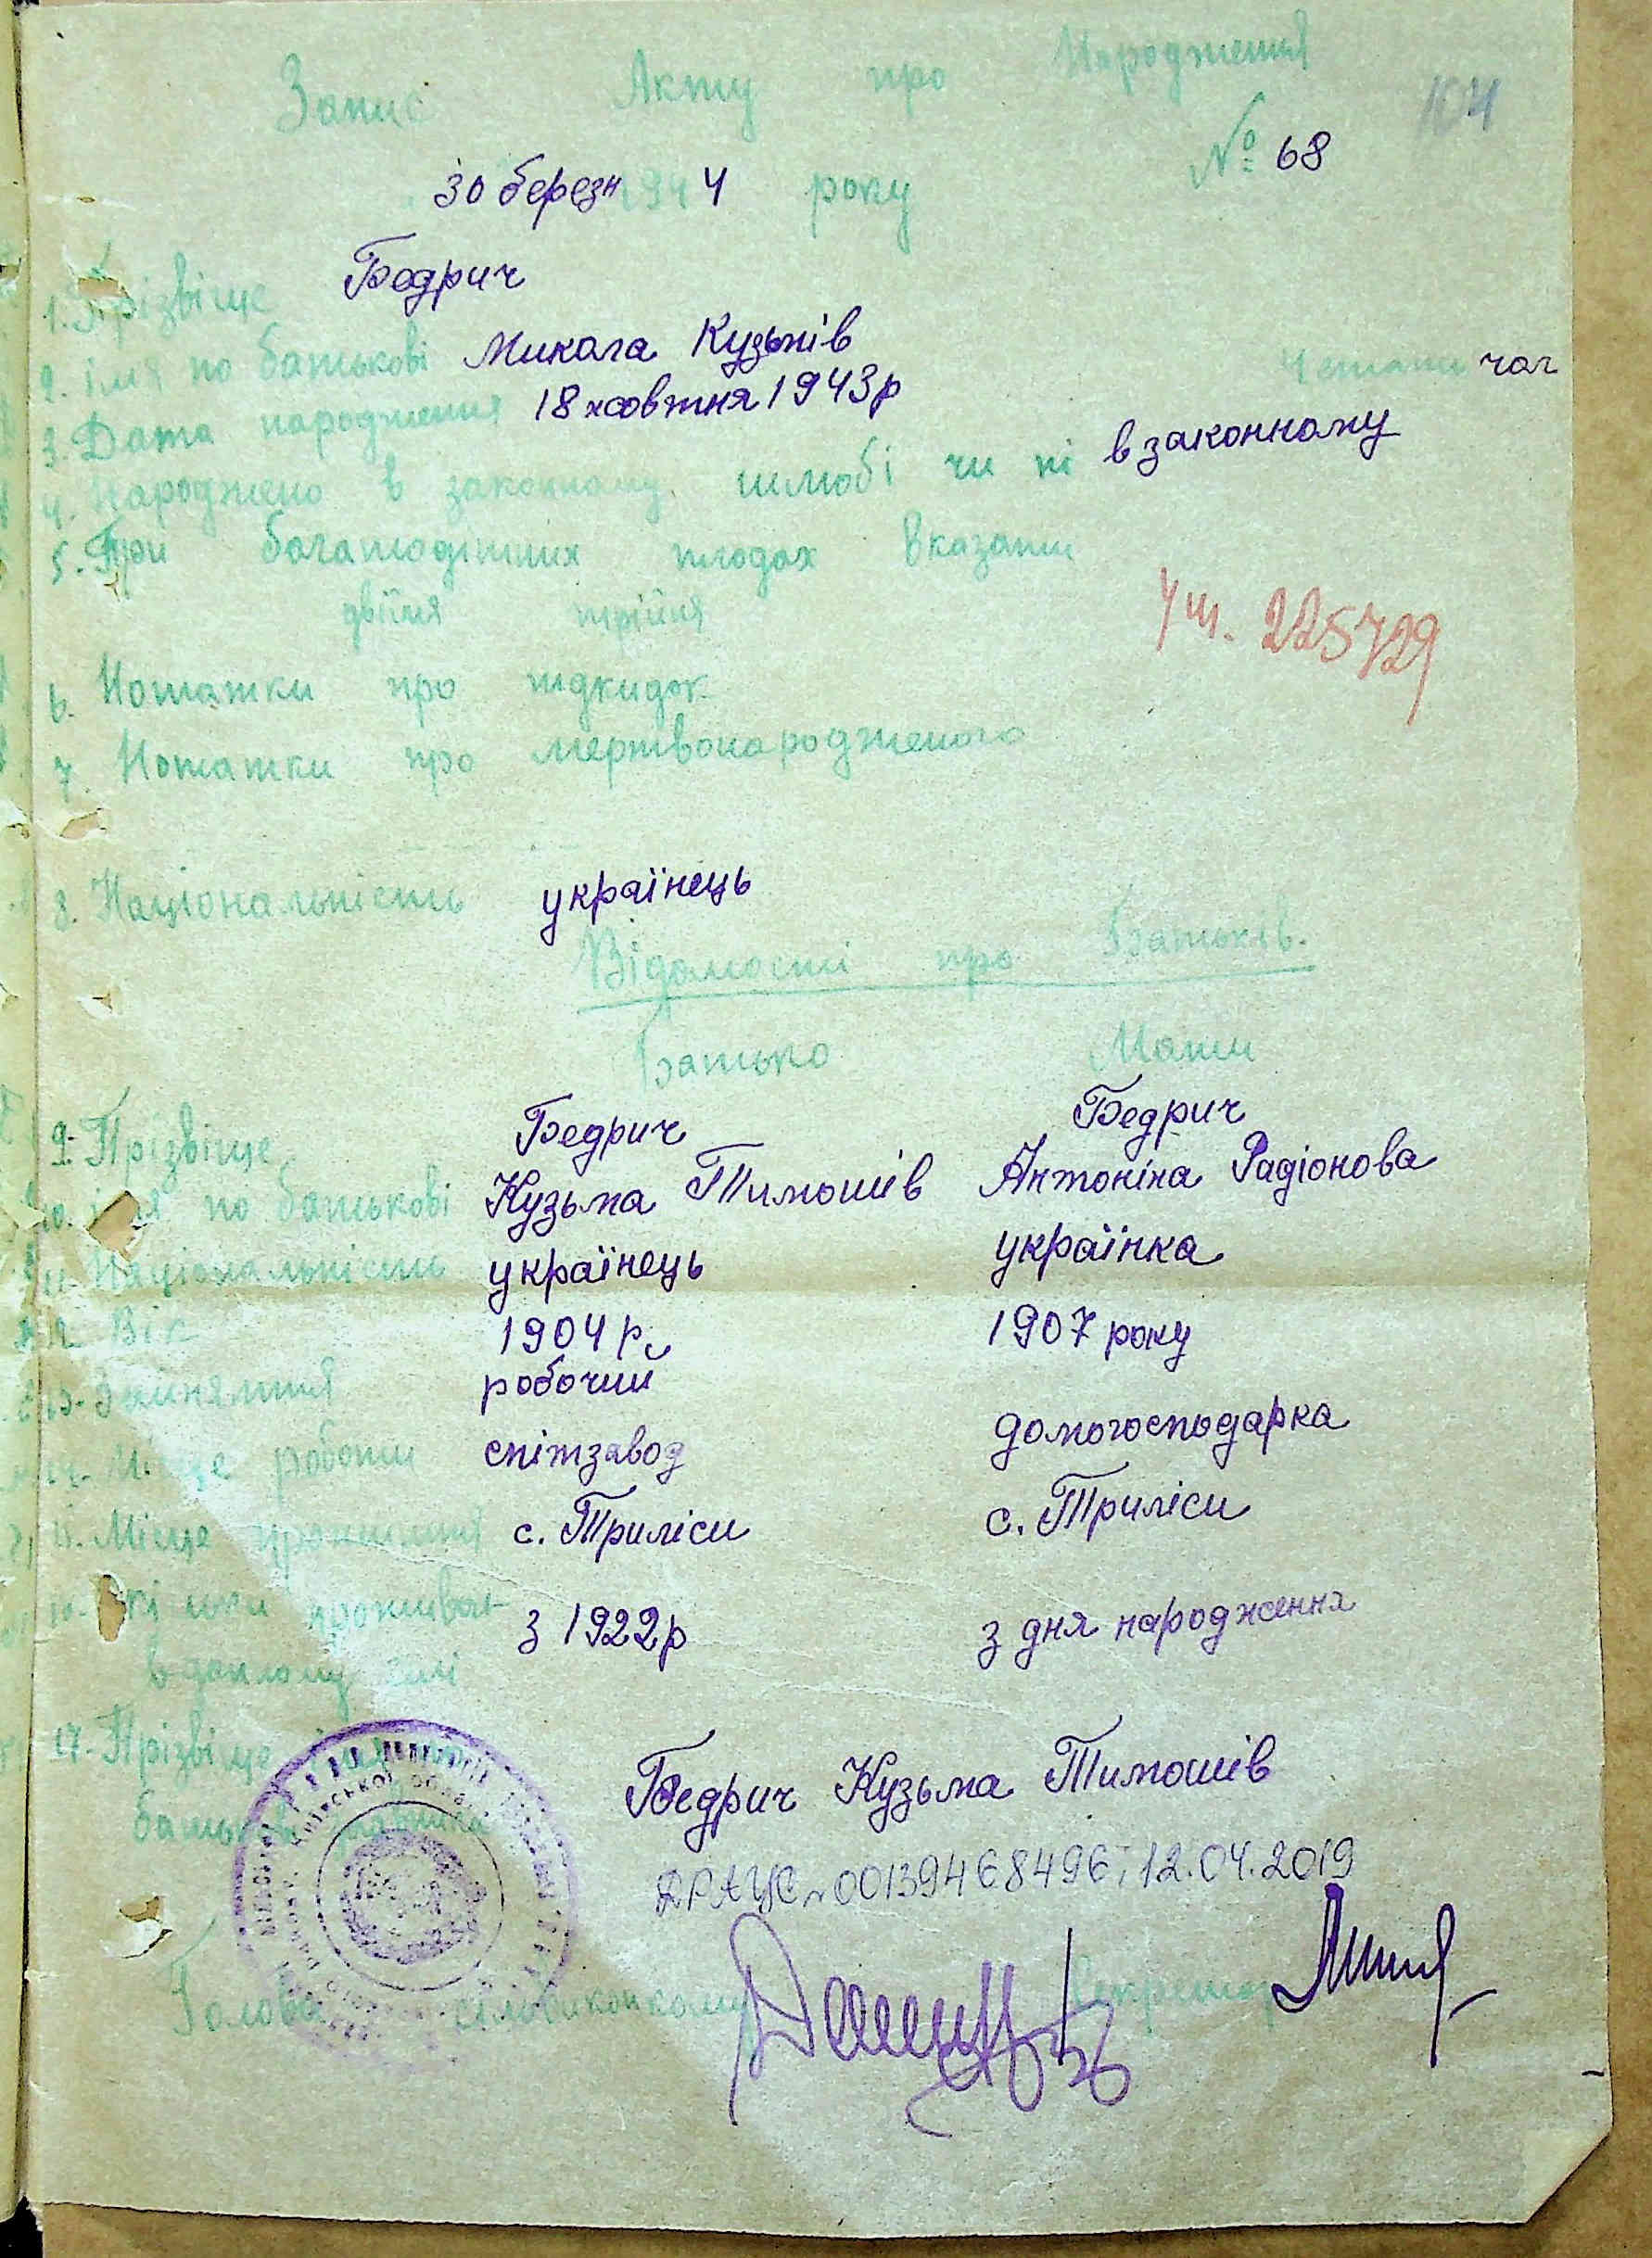 Запис Акту про Народження
№ 68
30 березн 1944 року
1. Прізвіще Бедрич
2. імя по батькові Микола Кузьмів
3. Дата народження 18 жовтня 1943р чол
4. Народжено в законному шлюбі чи ні в законному
5. При богатодітних плодах вказати
двійня трійня
Уш. 225729
6. Нотатки про підкидок
7. Нотатки про мертвонародженого
8. Національність українець
Відомості про Батьків.
Батько Мати
9. Прізвіще Бедрич Бедрич
10. імя по батькові Кузьма Тимошів Антоніна Радіонова
11. Національність українець українка
12. Вік 1904 р. 1907 року
13. Заняття робочий
14. Місце роботи спітзавод домогосподарка
15. Місце с. Триліси с. Триліси
16. проживає з 1922р з дня народження
в даному селі
17. Прізвіще Бедрич Кузьма Тимошів
ДРАЦС 00139468496; 12.04.2019
Голова сільвиконкому Секретар